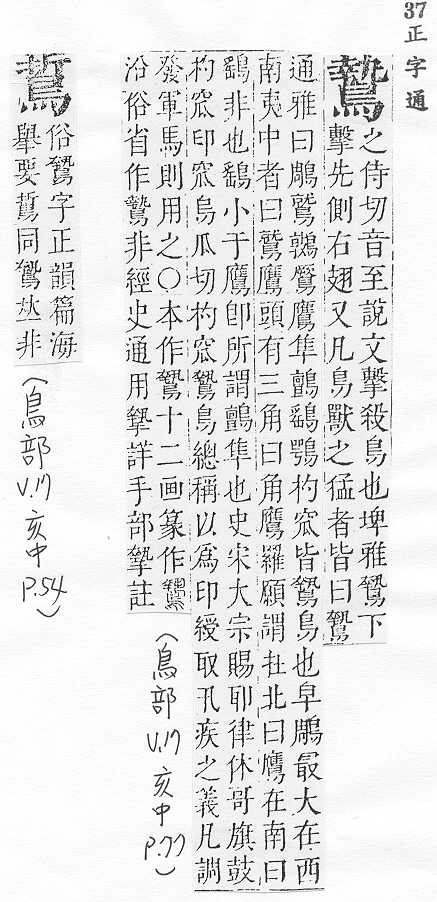 37 正字通
鷙
之侍切音至說文擊殺鳥也埤雅鷙下
擊先側右翅又凡鳥獸之猛者皆曰鷙
通雅曰鵰鷲鷻鷢鷹隼鸇鷂鶚杓窊皆鷙鳥也皁鵰最大在西
南夷中者曰鷲鷹頭有三角曰角鷹羅願謂在北曰鷹在南曰
鷂非也鷂小于鷹卽所謂鸇隼也史宋大宗賜耶律休哥旗鼓
杓窊印窊鳥瓜切杓窊鷙鳥總稱以爲印綬取孔疾之義凡調
發軍馬則用之○本作鷙十二画篆作
沿俗省作鷙非經史通用摯詳手部摯註
(鳥部 V.17 亥中 P.77)
俗鷙字正韻篇海
舉要同鷙𠀤非
(鳥部 V.17 亥中 P.54)